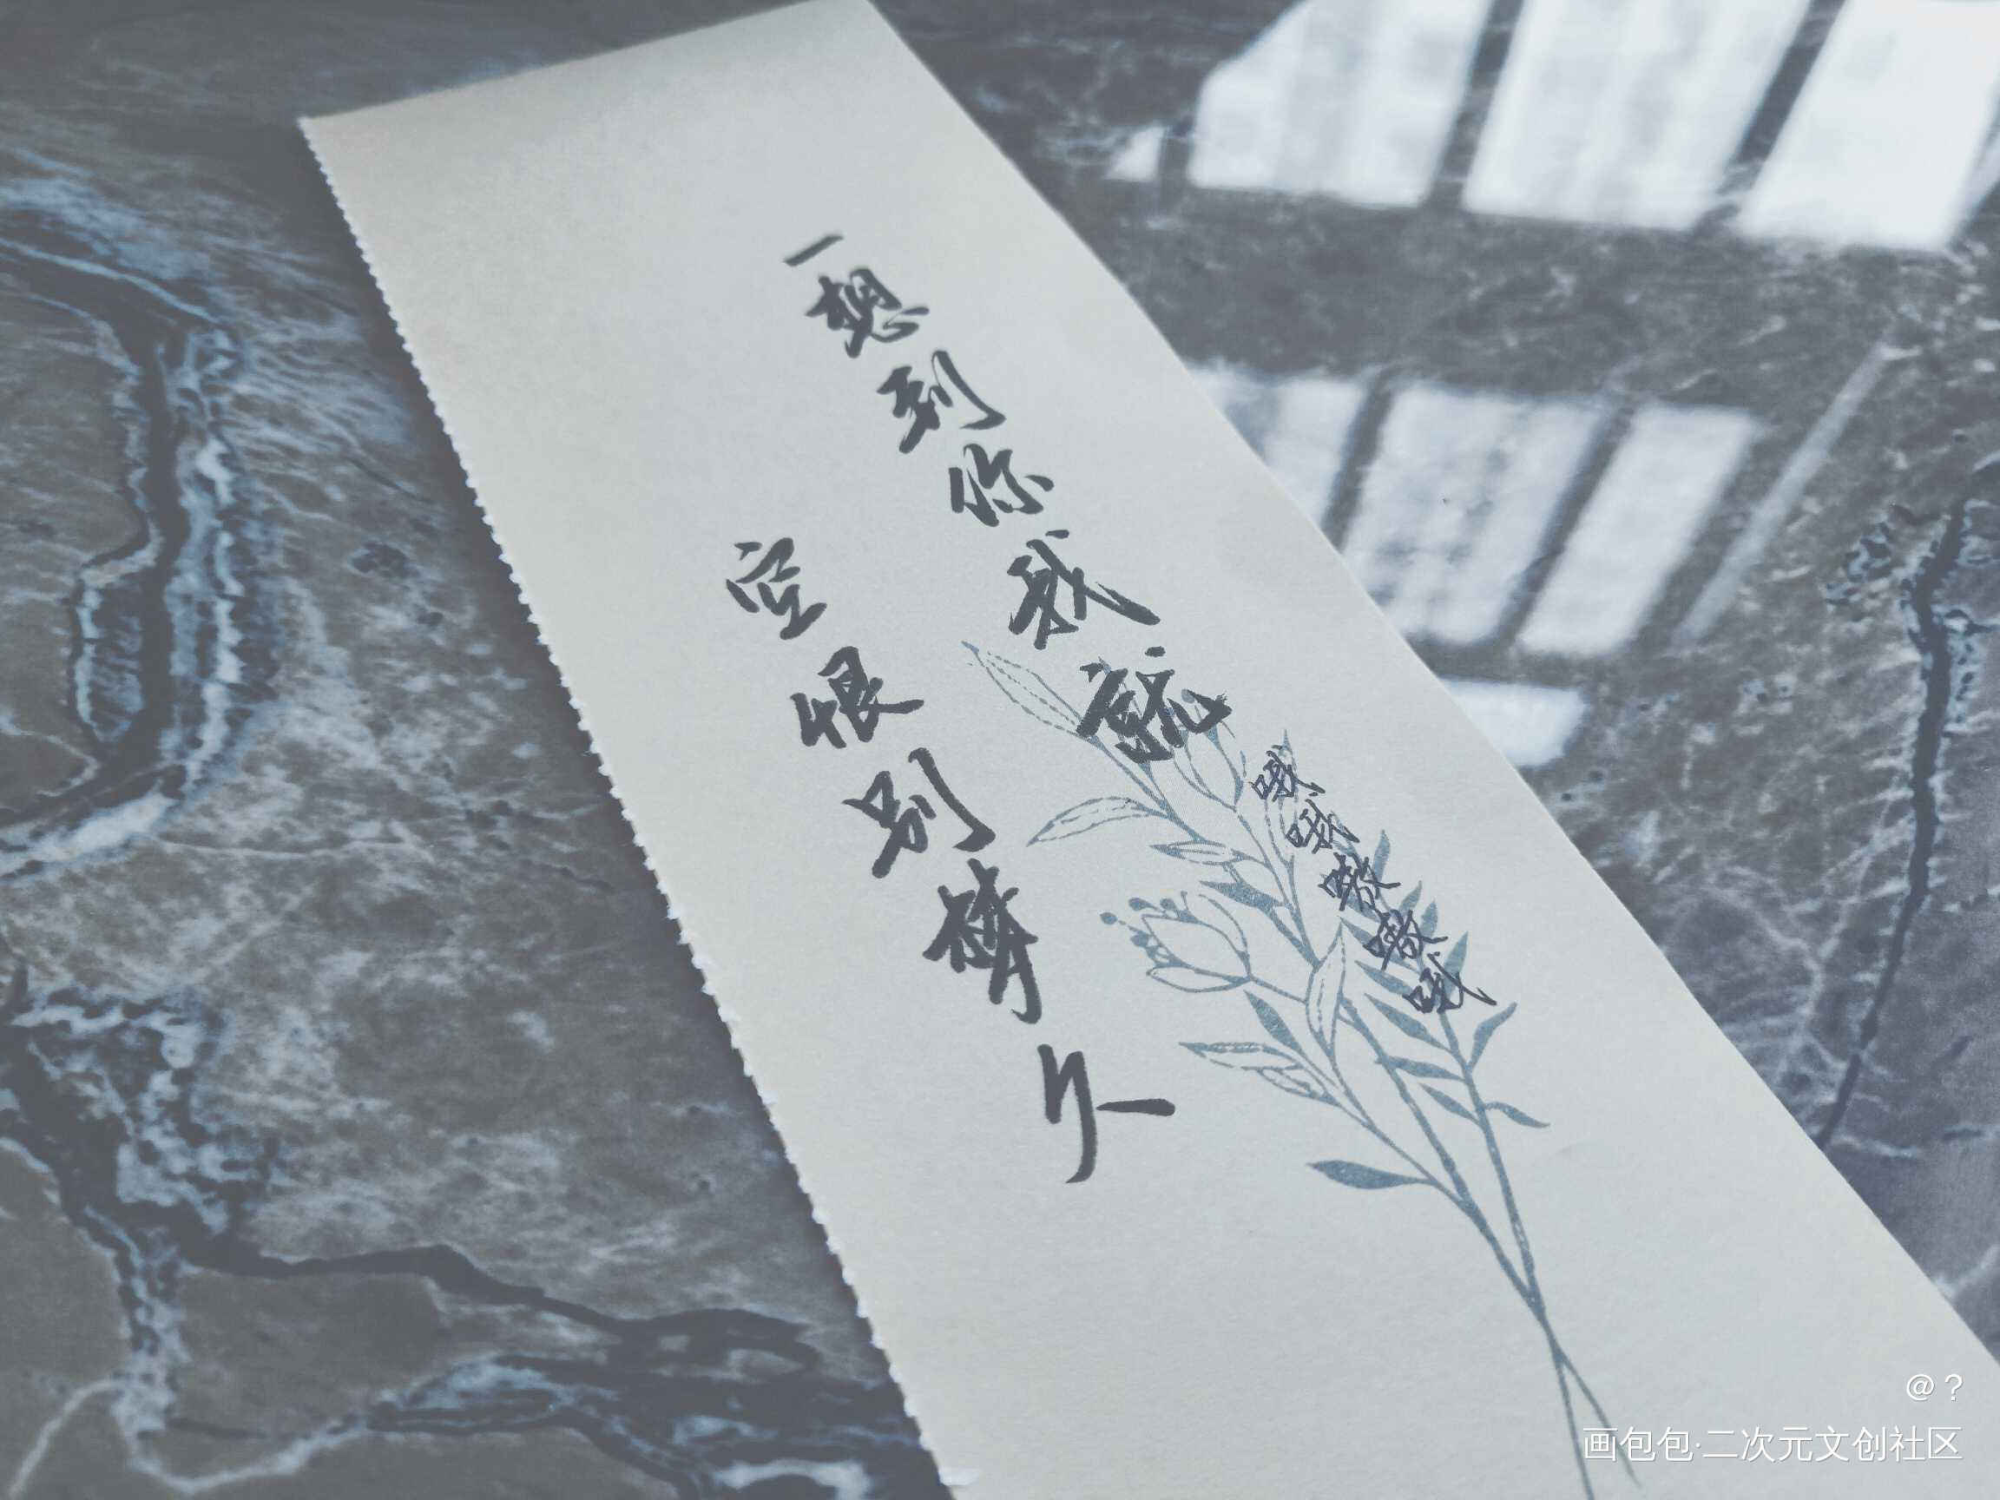 一想到你我就
哦哦嗷嗷哦
空恨别梦久
@？
画包包·二次元文创社区